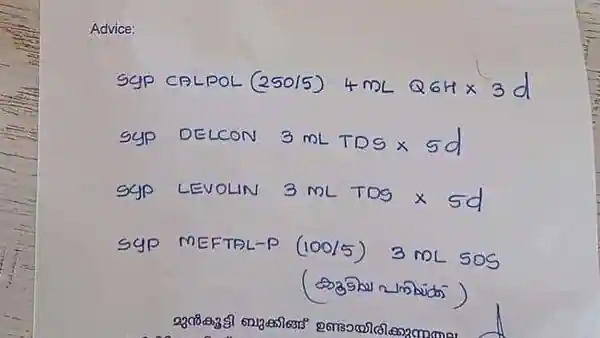 Advice:
syp CALPOL (250/5) 4 mL Q6H x 3 d
syp DELCON 3 mL TDS x 5d
syp LEVOLIN 3 mL TDS x 5d
syp MEFTAL-P (100/5) 3 mL SOS
(കൂടിയ പനിയ്ക്ക്)
മുൻകൂട്ടി ബുക്കിങ്ങ് ഉണ്ടായിരിക്കുന്നതല്ല